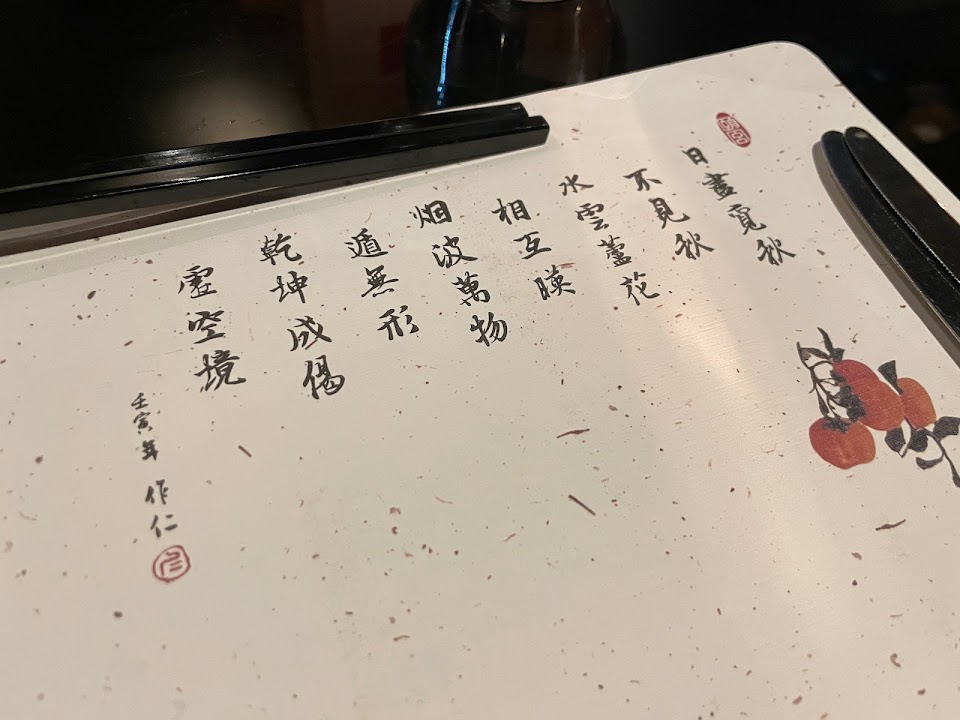 日盡覓秋
不見秋
水雲蘆花
相互暎
烟波萬物
遁無形
乾坤成偈
虛空境
壬寅年 作仁